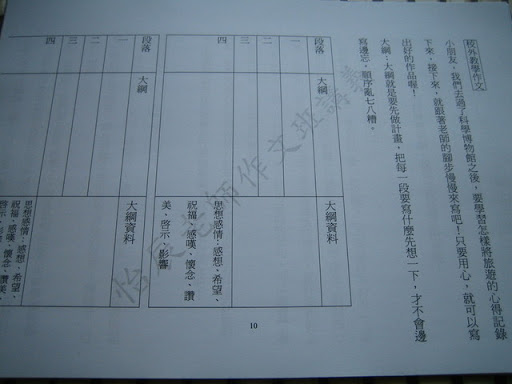 校外教學作文
小朋友，我們去過了科學博物館之後，要學習怎樣將旅遊的心得記錄
下來，接下來，就跟著老師的腳步慢慢來寫吧！只要用心，就可以寫
出好的作品喔！
大綱：大綱就是要先做計畫，把每一段要寫什麼先想一下，才不會邊
寫邊忘，順序亂七八糟。
段落 大綱 大綱資料
一
二
三
四 思想感情：感想、希望、
祝福、感嘆、懷念、讚
美、啟示、影響
段落 大綱 大綱資料
一
二
三
四 思想感情：感想、希望、
祝福、感嘆、懷念、讚美、
啟示、影
老師作文班講義
10